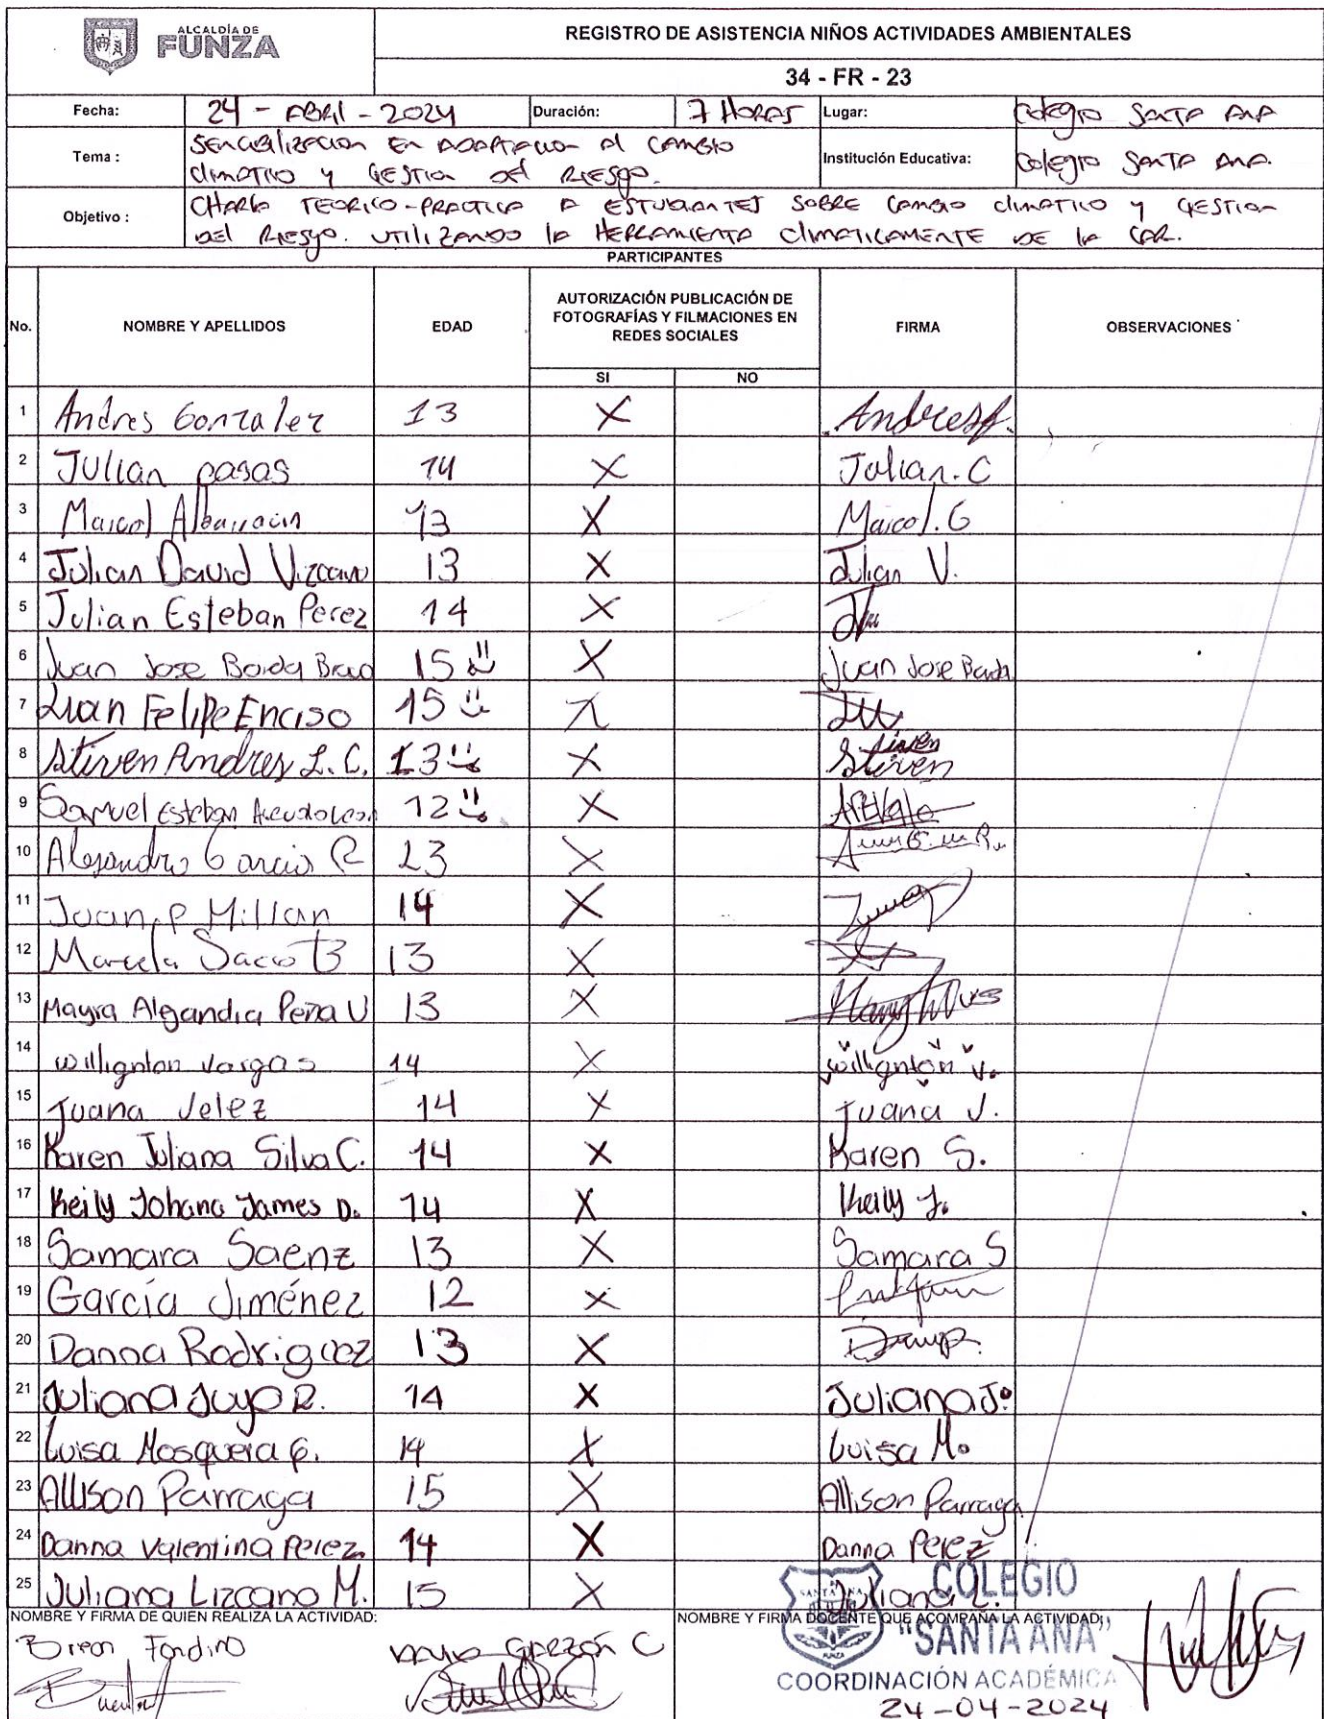 ALCALDÍA DE
FUNZA
REGISTRO DE ASISTENCIA NIÑOS ACTIVIDADES AMBIENTALES
34 - FR - 23
Fecha: 24 - ABRIL - 2024 Duración: 7 HORAS Lugar: Colegio SANTA ANA
Tema : SENCIBILIZACION EN ADAPTACION Al CAMBIO
CLIMATICO y GESTION del RIESGO. Institución Educativa: Colegio SANTA ANA.
Objetivo : CHARLA TEORICO-PRACTICA A ESTUDIANTES SOBRE CAMBIO CLIMATICO y GESTION
DEL RIESGO. UTILIZANDO LA HERRAMIENTA CLIMATICAMENTE DE LA CAR.
PARTICIPANTES
No. NOMBRE Y APELLIDOS EDAD AUTORIZACIÓN PUBLICACIÓN DE FOTOGRAFÍAS Y FILMACIONES EN REDES SOCIALES FIRMA OBSERVACIONES
SI NO
1 Andres Gonzalez 13 X
2 Julian casas 14 X Julian. C
3 Maicol Albarracin 13 X Maicol. G
4 Julian David Vizcaino 13 X Julian V.
5 Julian Esteban Perez 14 X
6 Juan Jose Borda 15 X Juan Jose Borda
7 Juan Felipe Enciso 15 X
8 Stiven Andres L. C. 13 X Stiven Stiven
9 Samuel Esteban 12 X
10 Alejandro Garcia R 13 X
11 Juan P Millan 14 X
12 Marcela 13 X
13 Mayra Alejandra Peña V 13 X
14 Willignton vargas 14 X willignton v.
15 Juana Velez 14 X Juana V.
16 Karen Juliana Silva C. 14 X Karen S.
17 Keily Johana James D. 14 X Keily J.
18 Samara Saenz 13 X Samara S
19 García Jiménez 12 X
20 Danna Rodriguez 13 X
21 Juliana Juyo R. 14 X Juliana J.
22 Luisa Mosquera G. 14 X Luisa M.
23 Allison Parraga 15 X Allison Parraga
24 Danna Valentina Perez. 14 X Danna Perez
25 Juliana Lizcano M. 15 X Juliana L.
NOMBRE Y FIRMA DE QUIEN REALIZA LA ACTIVIDAD: NOMBRE Y FIRMA DOCENTE QUE ACOMPAÑA LA ACTIVIDAD:
Garzón C
SANTA ANA
FUNZA
COLEGIO
"SANTA ANA"
COORDINACIÓN ACADÉMICA
24-04-2024